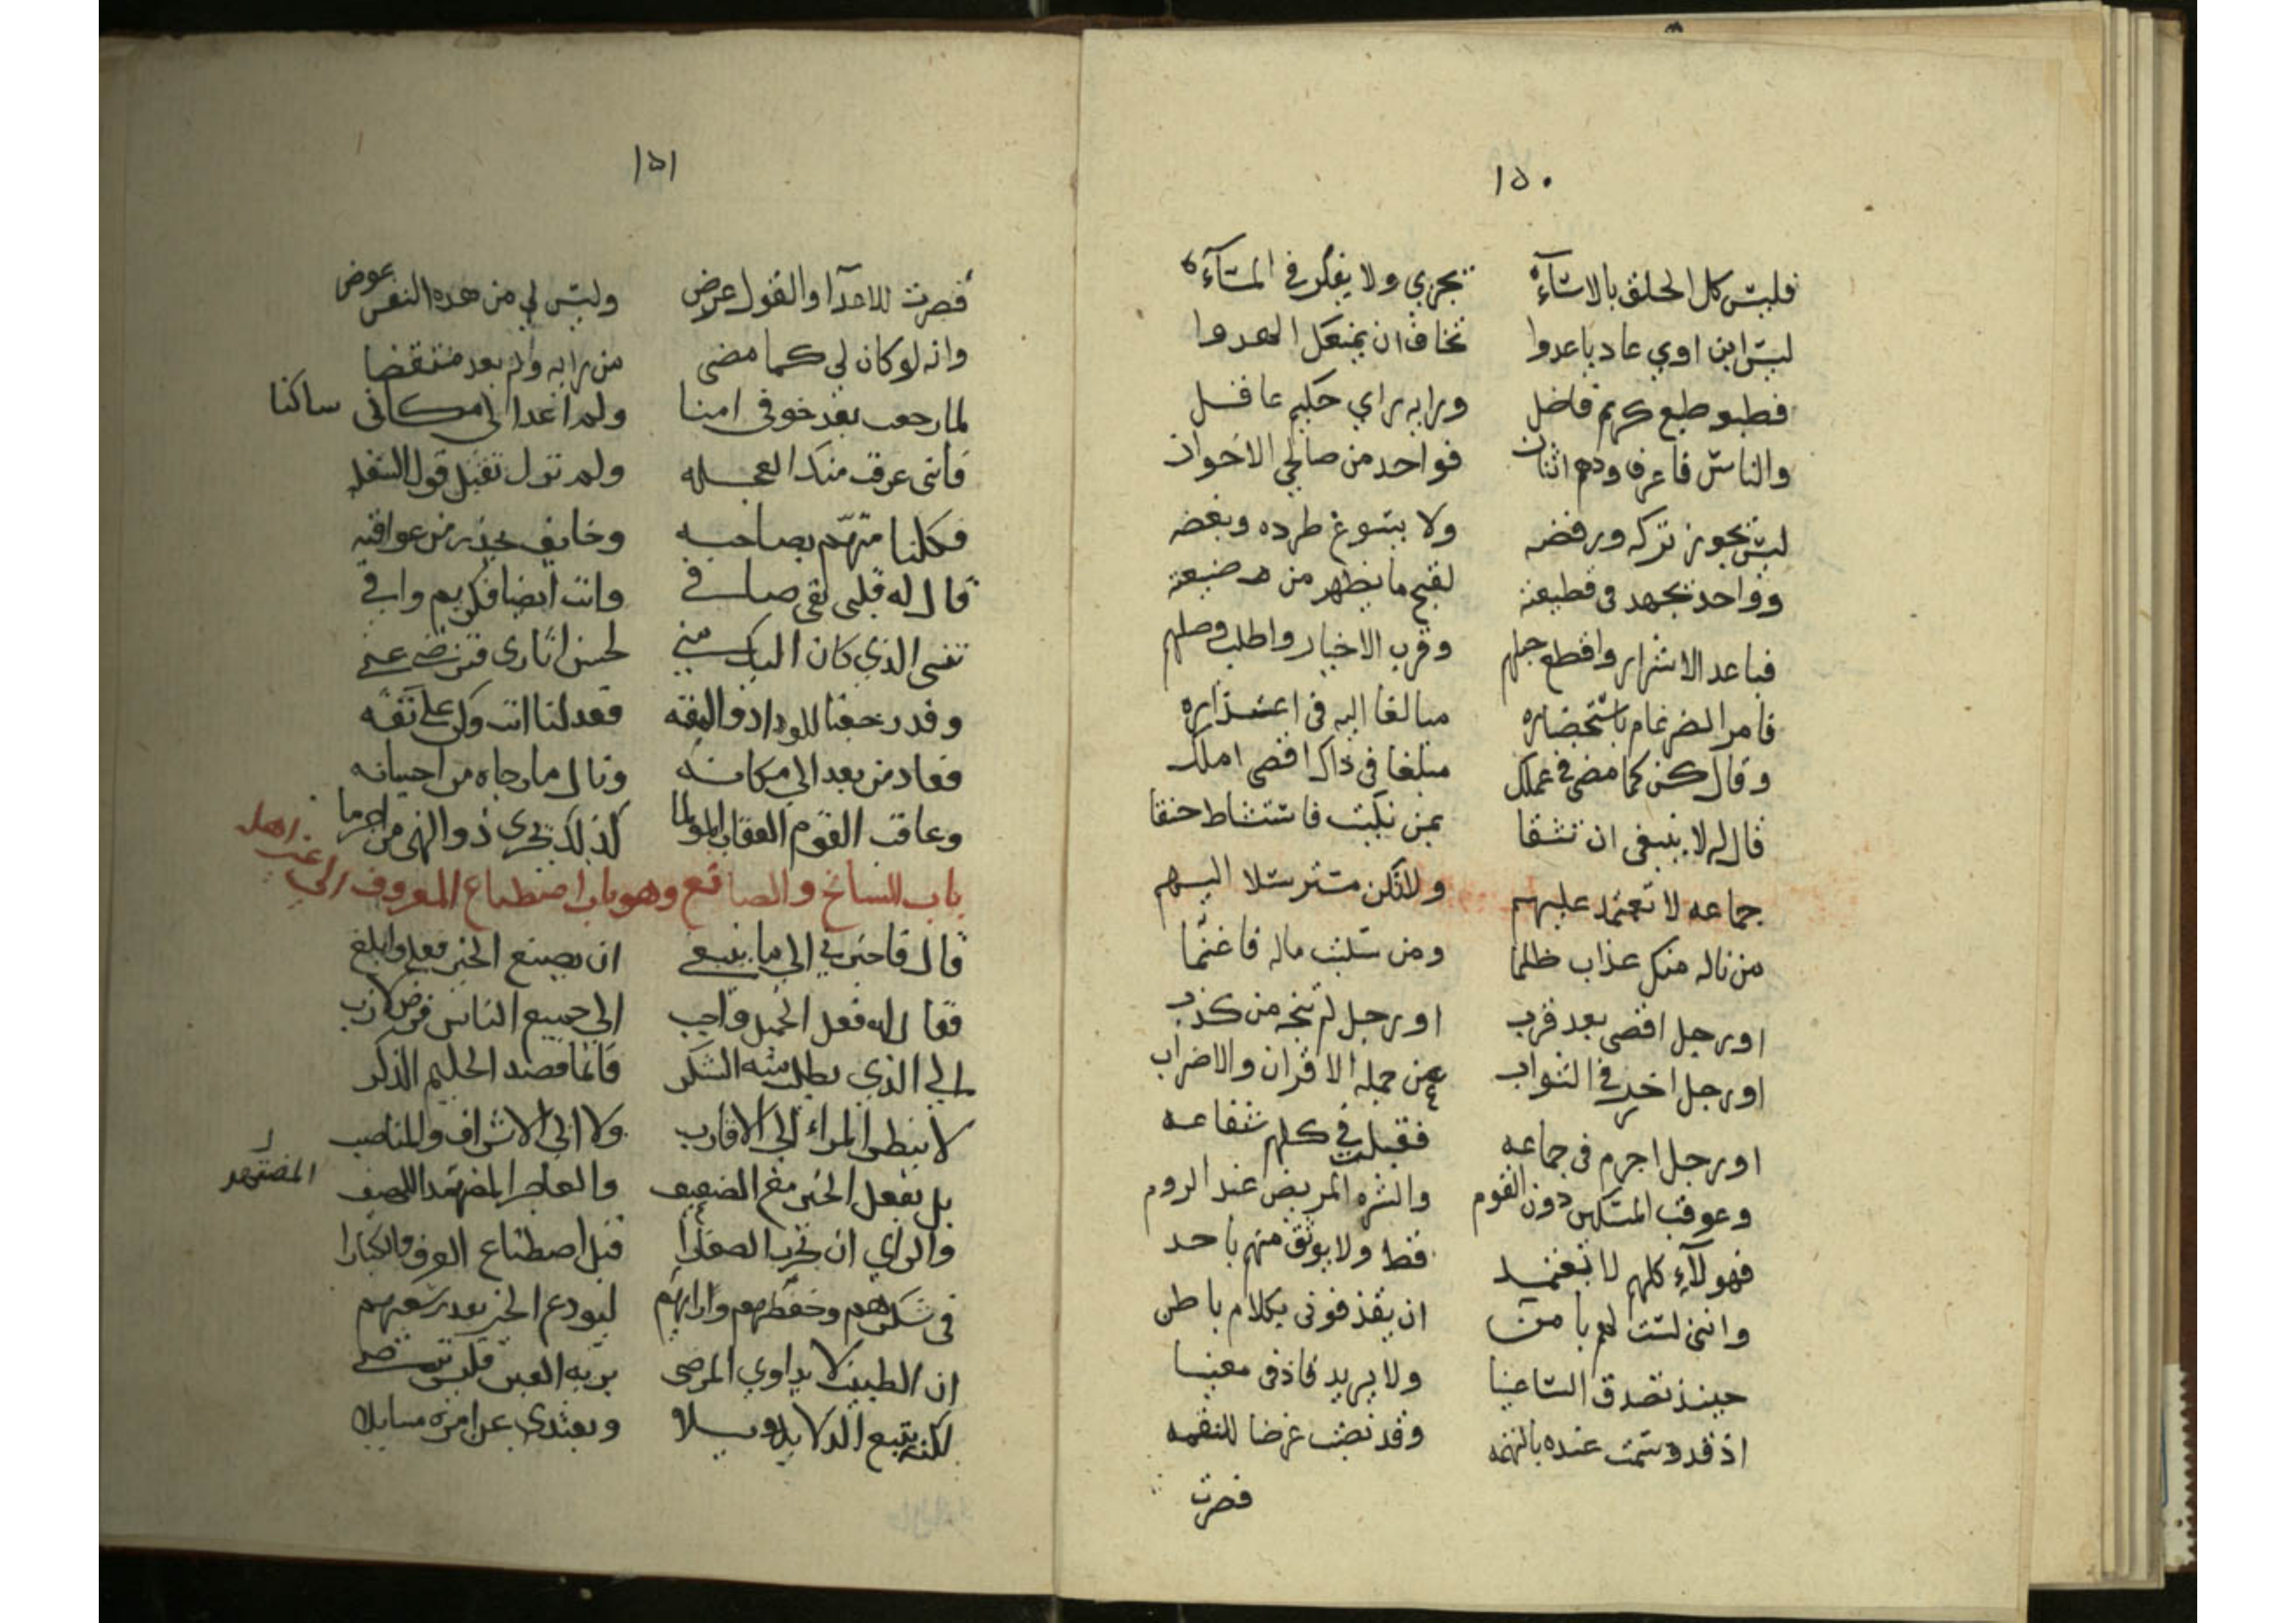 ١٥٠
فليس كل الخلق بالاساءة تجري ولا يفكر في المساءة
ليس ابن اوي عاد يا عدوا تخاف ان يمنعك الهدوا
فطبعه طبع كريم فاضل ورايه راي حكيم عاقل
والناس فاعرف ودهم اثنان فواحد من صالحي الاخوان
ليس يجوز تركه ورفضه ولا يسوغ طرده وبغضه
وواحد تجهد في قطيعته لقبح ما يظهر من صنيعته
فباعد الاشرار واقطع حبلهم وقرب الاخيار واطلب وصلهم
فامر الضرغام باستحضاره مبالغا اليه في اعتذاره
وقال كن كما مضى في عملك مبلغا في ذاك اقصى املك
قال له لا ينبغي ان تثقا بمن نكبت فاستشاط حنقا
جماعه لا تعتمد عليهم ولا تكن مسترسلا اليهم
من ناله منك عذاب ظلما ومن سلبت ماله فاغتما
او رجل اقصى بعد قرب او رجل لم تنجه من كذب
او رجل اخر في الثواب عن جمله الاقران والاضراب
او رجل اجرم في جماعه فقبلت في كلهم شفاعه
وعوقب المسكين دون القوم والشره المريض عند الروم
فهولآء كلهم لا تعتمد قط ولا يوثق منهم باحد
وانني لست لهم بامن ان يقذفوني بكلام باطن
حينئذ تصدق الساعيا ولا يريد قاذفي معيبا
اذ قد وسمت عنده بالتهمه وقد نصبت غرضا للنقمه
فصرت
١٥١
فصرت للاعدآ والقول عرض وليس لي من هذه النفس عوض
وانه لو كان لي كما مضى من رايه ولم يعد منتقضا
لما رجعت بعد خوفي امنا ولم اعد الى مكاني ساكنا
فانني عرفت منك العجله ولم تزل تقبل قول السفله
فكلنا متهم بصاحبه وخايف يحذر من عواقبه
قال له قلبي نقي صافي وانت ايضا فكريم وافي
تنسى الذي كان اليك مني لحسن اثاري فترضى عني
وقد رجعنا للوداد والثقه فعد لنا انت وكن على ثقه
فعاد من بعد الى مكانه ونال ما رجاه من احسانه
وعاقب القوم العقاب المولما كذلك يجزى ذو النهى من اجرما
باب السائح والصائغ وهو باب اصطناع المعروف الى غير اهله
قال فاخبرني الى ما ينبغي ان يصنع الخير فعله وابلغ
فقال له فعل الجميل واجب الى جميع الناس فرض لازب
الى الذي يطلب منه الشكر فانما قصد الحليم الذكر
لا ينظر المراء الى الاقارب ولا الى الاشراف والمناصب
بل يفعل الخير مع الضعيف والعاجز المضطهد اللهيف
المضطهد
والراي ان تجرب الصغارا قبل اصطناع العرف والكبارا
في شكرهم وحفظهم وارايهم ليودع الخير بعد سعيهم
ان الطبيب لا يداوي المرضى بريه العين فليس ترضى
لكنه يتبع الدلايلا ويبتدي عن امره مسايلا